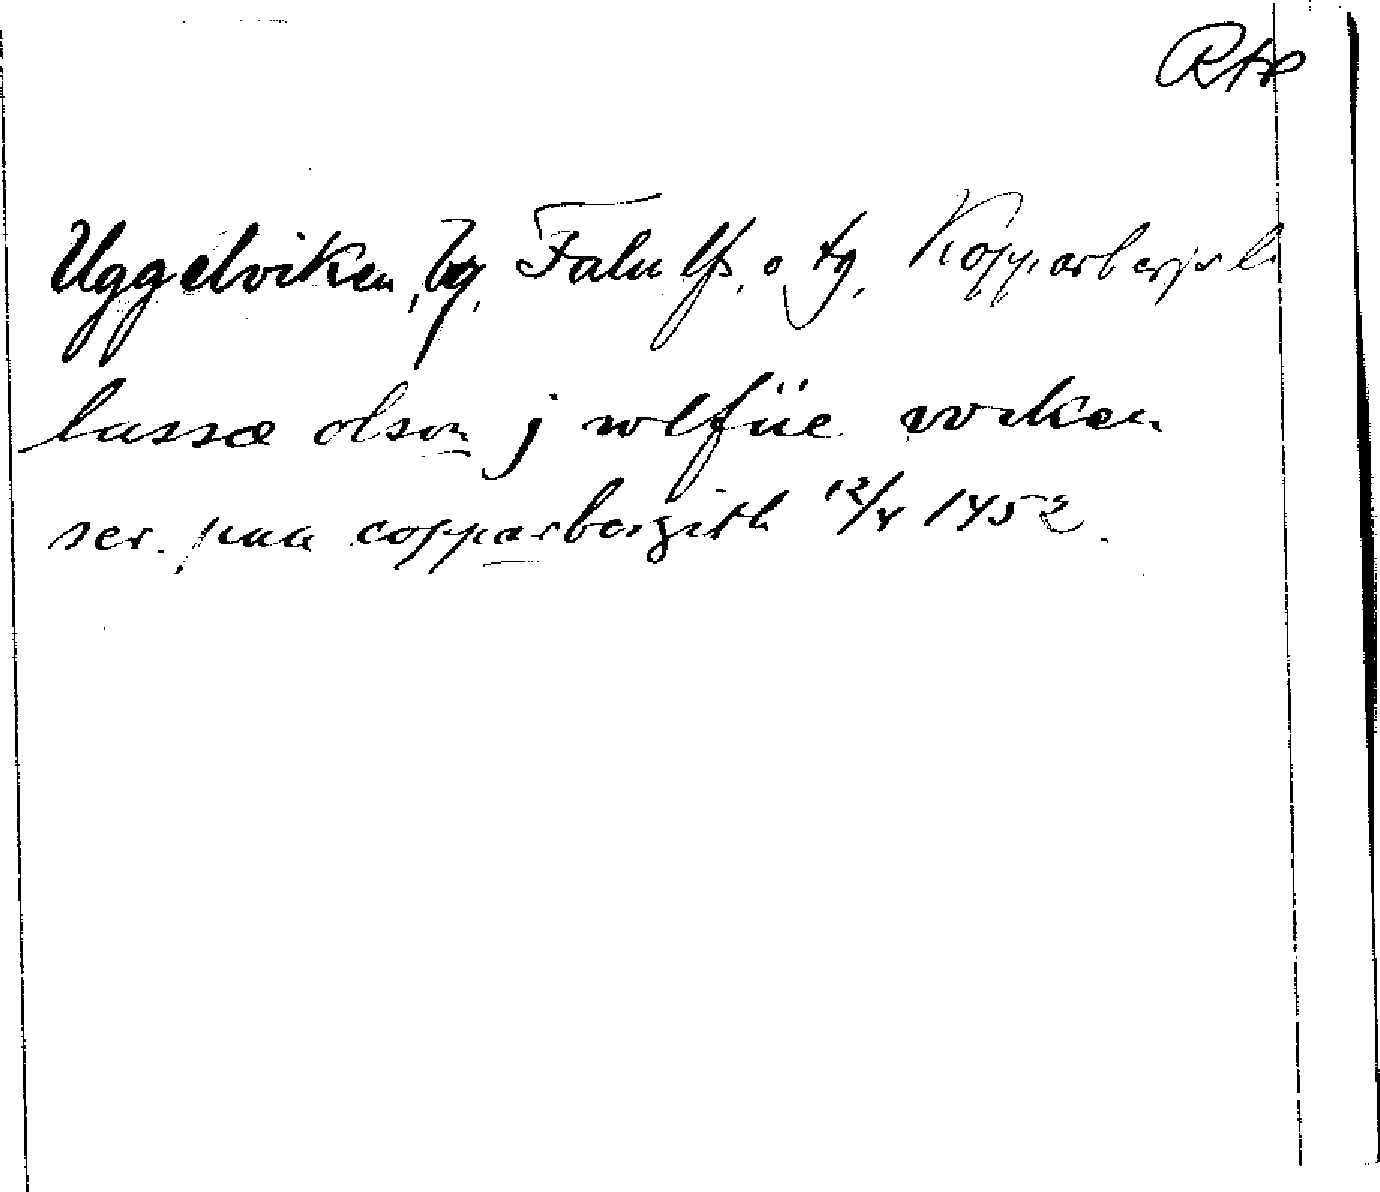 RAP
Uggelviken, bg, Falu lfs. o tg, Kopparbergs l
lasse olson j wlfüe viken
scr. paa copparbergith 12/4 1452